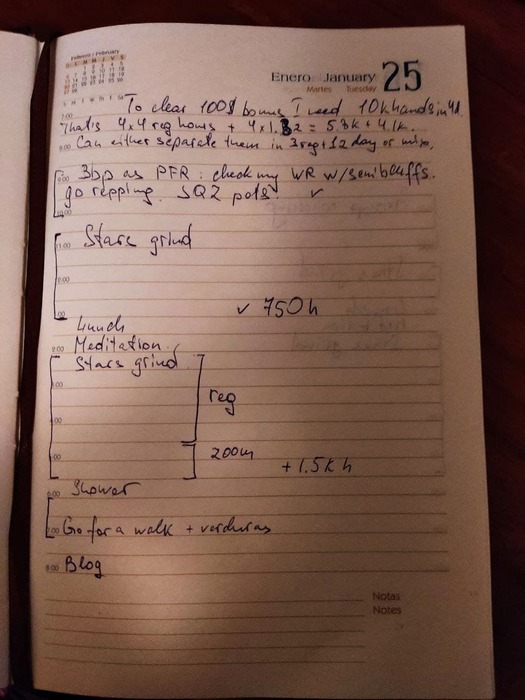 Febrero / February
Enero January 25
Martes Tuesday
To clear 100$ bonus I need 10k hands in 4d.
7:00
That's 4x4 reg hours + 4x1.32 = 5.8k + 4.1k.
8:00 Can either separate them in 3 reg + 12 day or mix.
9:00 3bp as PFR: check my WR w/semibluffs.
go repping. SQZ pots. ✓
10:00
11:00 Stars grind
✓ 750h
Lunch
Meditation.
Stars grind
reg
200m
+ 1.5k h
6:00 Shower
7:00 Go for a walk + verduras
8:00 Blog
Notas
Notes